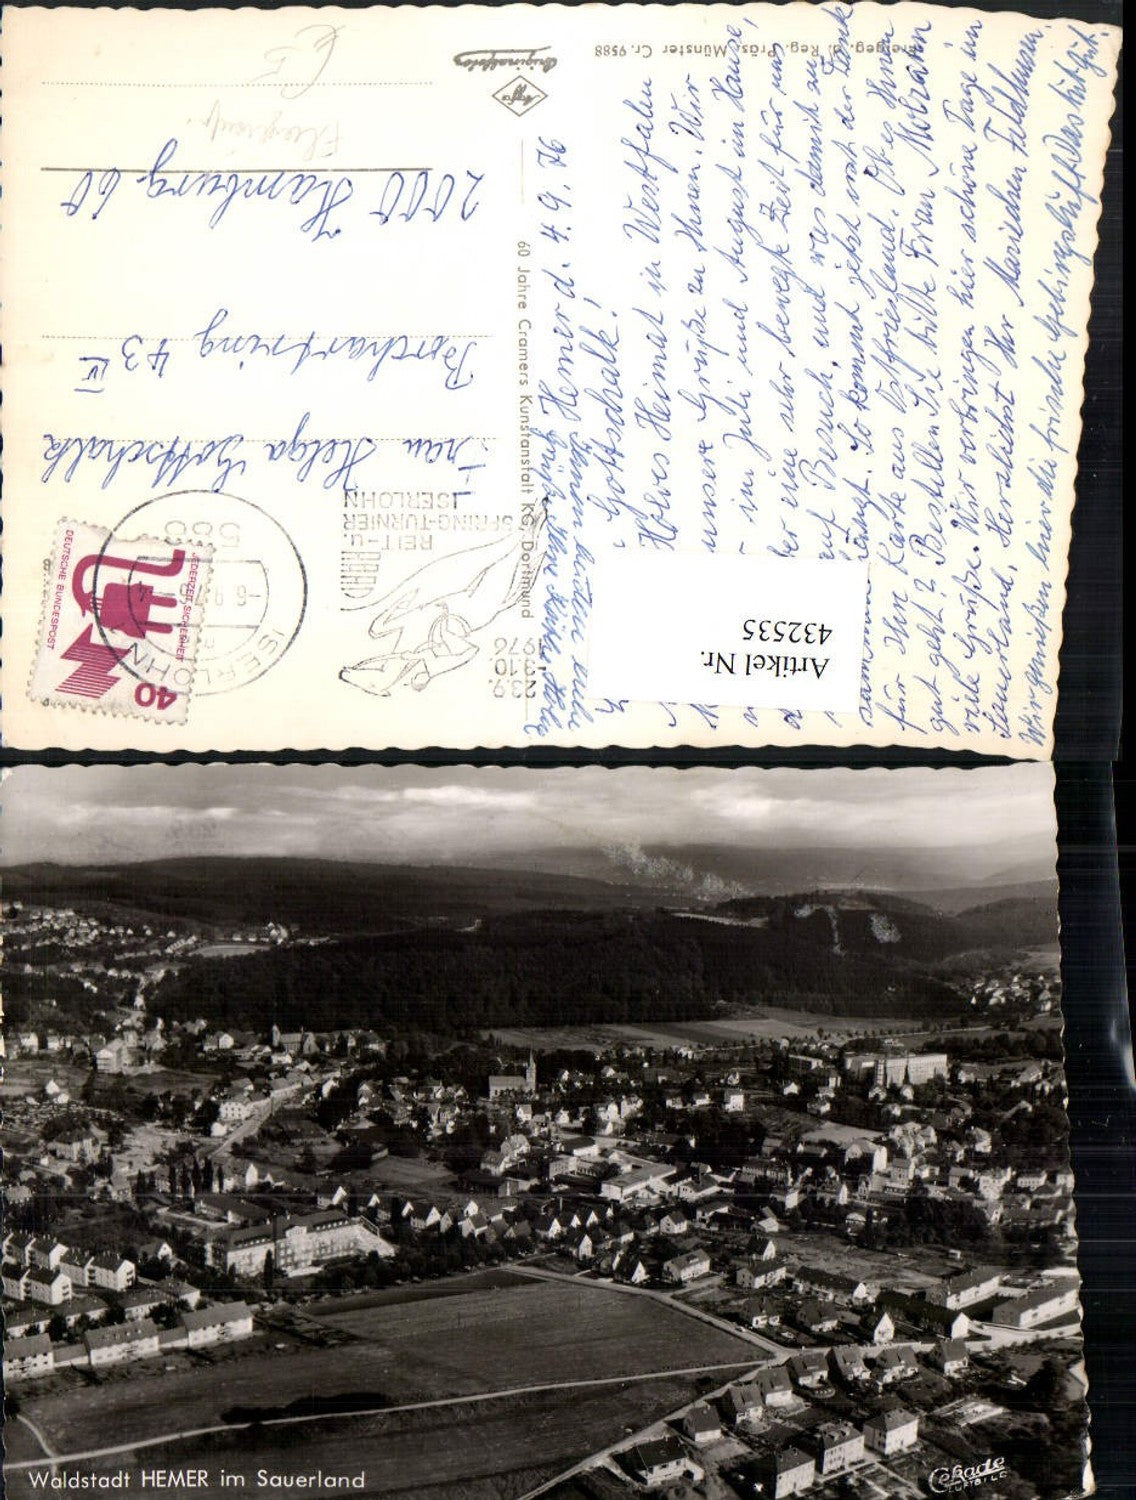 Freigeg. d. Reg. Präs. Münster Cr. 9588
Originalfoto
Agfa
60 Jahre Cramers Kunstanstalt KG, Dortmund
Artikel Nr.
432535
DEUTSCHE BUNDESPOST
JEDERZEIT SICHERHEIT
40
ISERLOHN
586
-6.9.76
23.9.
3.10.
1976
REIT- u.
SPRING-TURNIER
ISERLOHN
Frau Helga Gottschalk
Borchertring 43 IV
2000 Hamburg 60
Hemer, d. 4.9.76
Gottschalk!
Heimat in Westfalen
unsere Grüße zu Ihnen. Wir
im Juli und August in Hause,
eine sehr bewegte Zeit für uns
auf Besuch, und was damit zu
So kommt jetzt erst der Dank
für Ihre Karte aus Ostfriesland. Ob es Ihnen
gut geht? Bestellen Sie bitte Frau Molzann
viele Grüße. Wir verbringen hier schöne Tage im
Sauerland. Herzlichst Ihr Mariechen Feldhusen
Wir genießen hier die frische Gebirgsluft. Das tut gut.
Waldstadt HEMER im Sauerland
Cekade
LUFTBILD